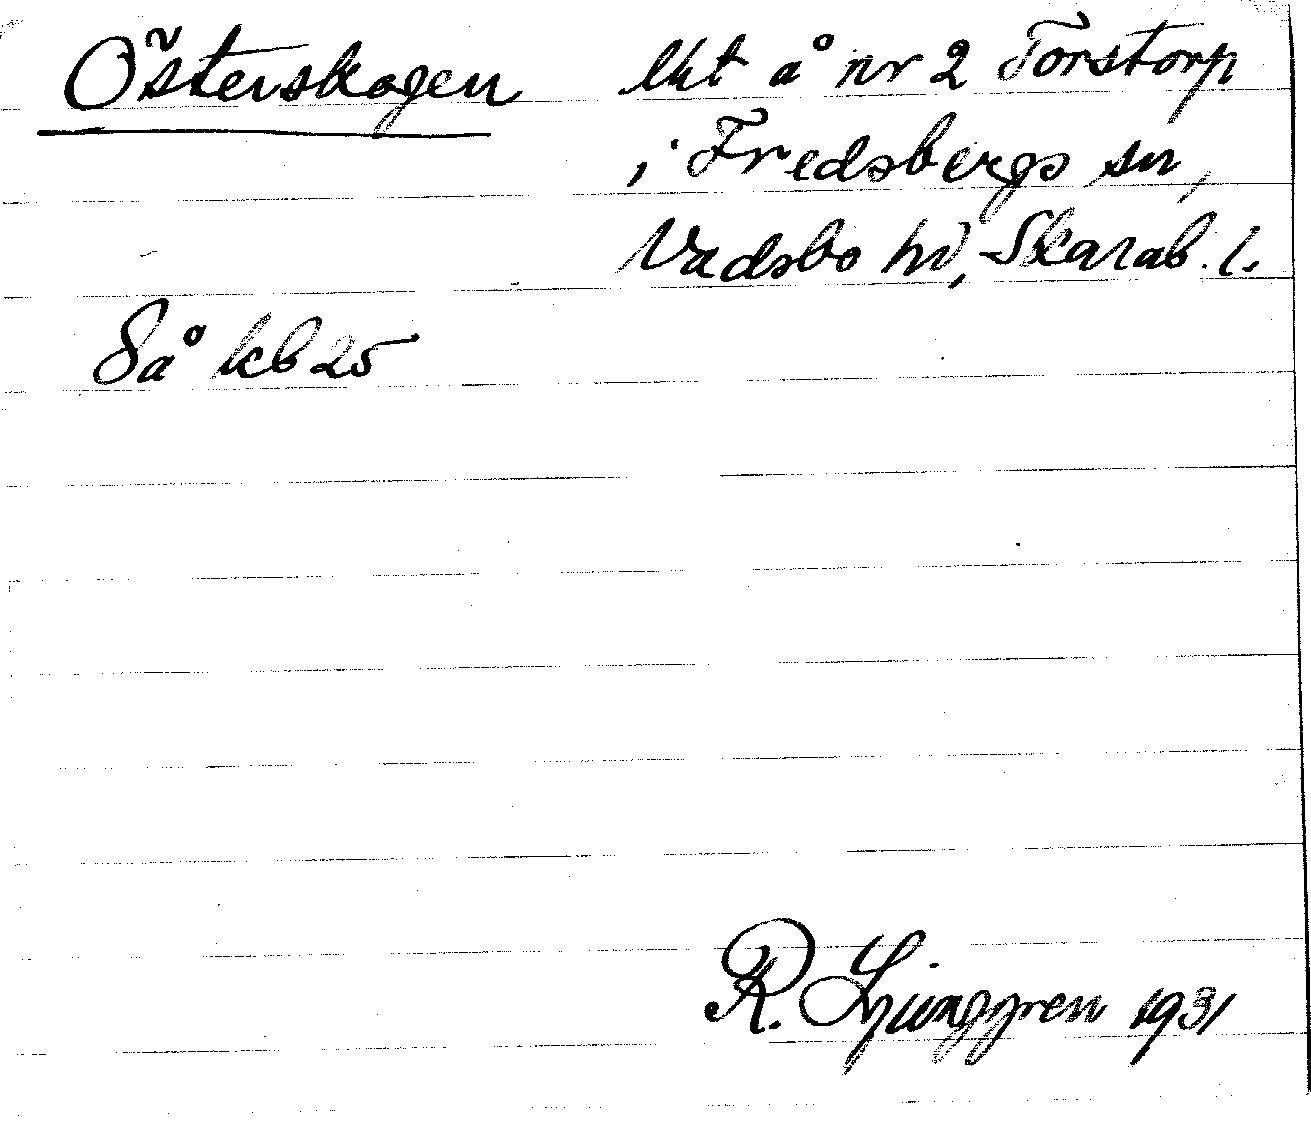 Österskogen lht å nr 2 Torstorp
i Fredsbergs sn,
Vadsbo hd, Skarab. l.
Så kb 25
R. Ljunggren 1931